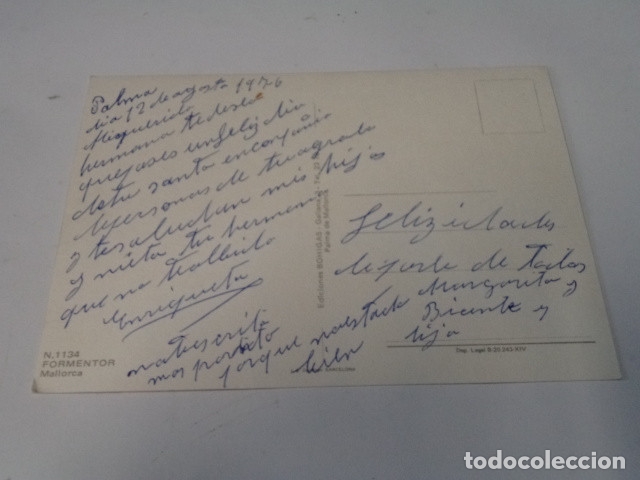 Palma
dia 12 de agosto 1976
Mi querida
hermana te deseo
que pases un feliz dia
de tu santa en conpañia
de personas de tu agrado
y te saludan mis hijos
y nieta tu hermana
que no te olbida
Enriqueta
no te escrito
mas pronto
porque no estado
bien
Felizidades
de parte de todos
Margarita y
Bicente y
hija
N. 1134
FORMENTOR
Mallorca
Ediciones BOHIGAS
Palma de Mallorca
BARCELONA
Dep. Legal B.
todocoleccion.net